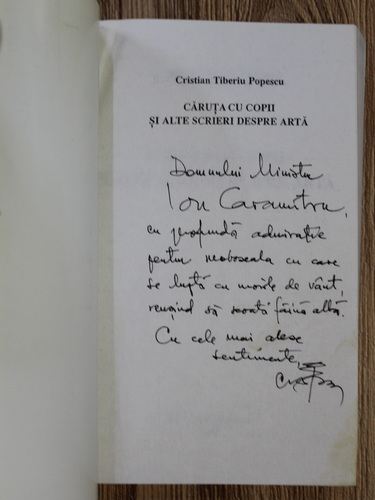 Cristian Tiberiu Popescu
CĂRUȚA CU COPII
ȘI ALTE SCRIERI DESPRE ARTĂ
Domnului Ministru
Ion Caramitru,
cu profundă admirație
pentru neoboseala cu care
se luptă cu morile de vânt,
reușind să scoată făină albă.
Cu cele mai alese
sentimente,